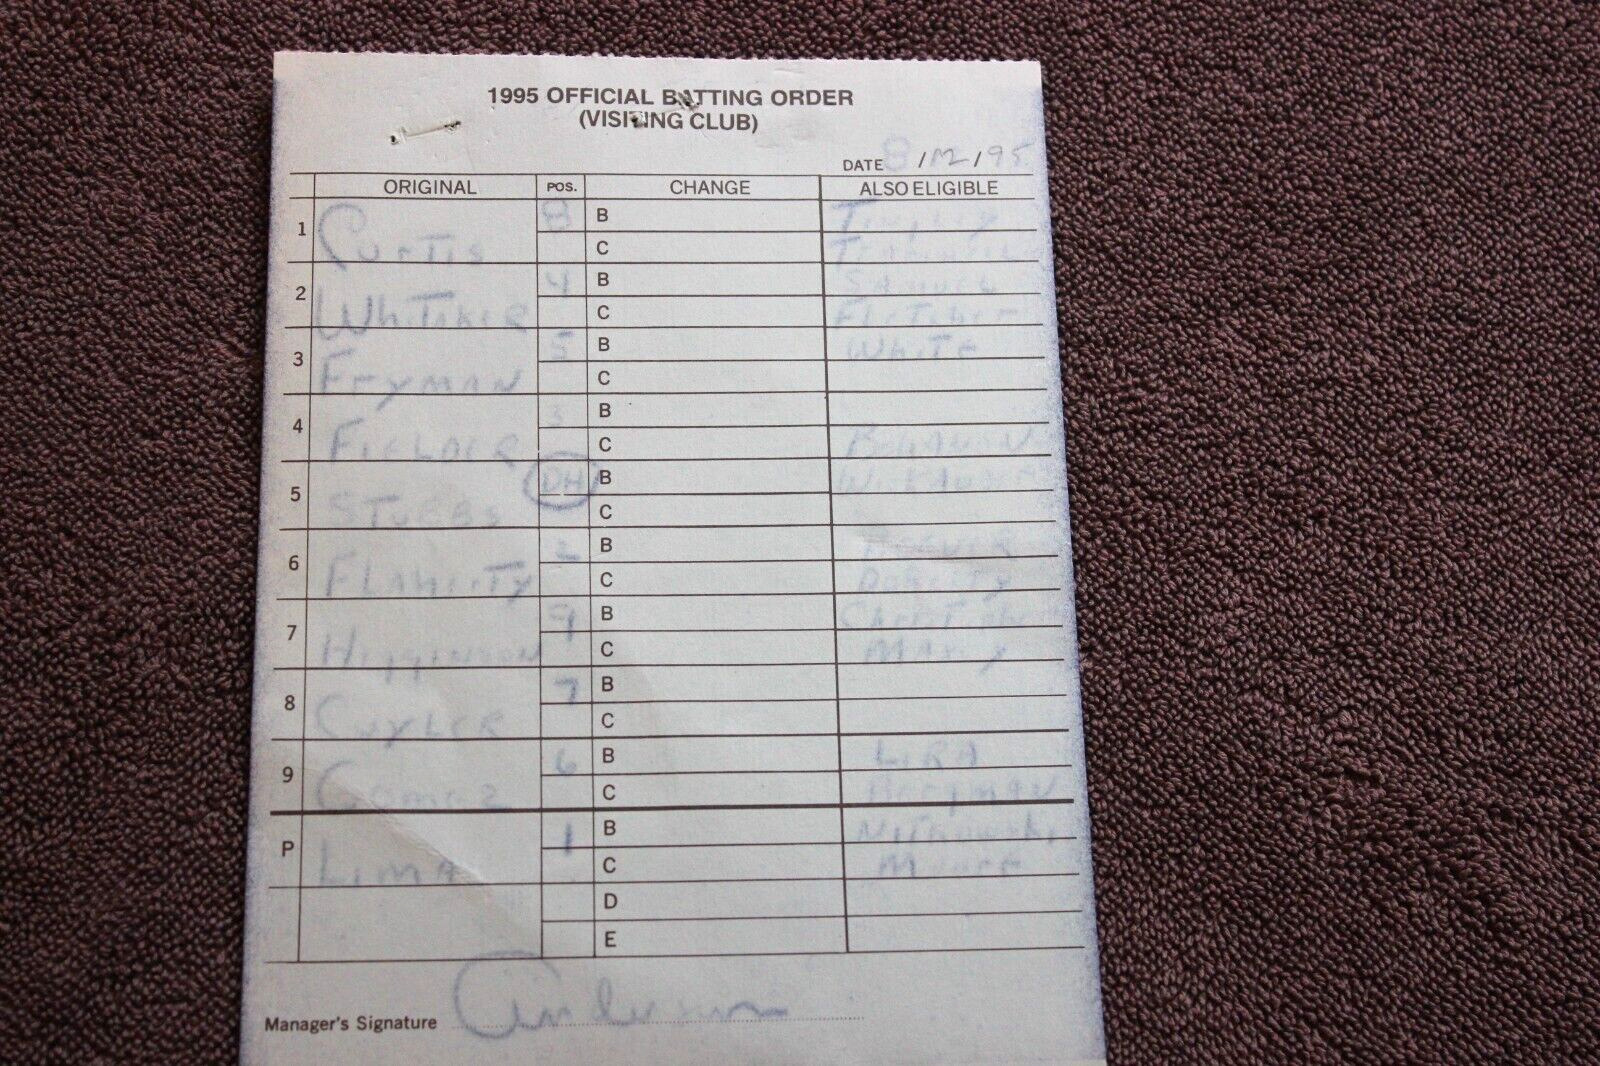 1995 OFFICIAL BATTING ORDER
(VISITING CLUB)
DATE 8/12/95
ORIGINAL POS. CHANGE ALSO ELIGIBLE
1 Curtis 8 B Tingley
C Trammell
2 Whitaker 4 B Samuel
C Fletcher
3 Fryman 5 B White
C
4 Fielder 3 B
C Bohanon
5 Stubbs DH B
C
6 Flaherty 2 B
C Doherty
7 Higginson 9 B Christopher
C Maxcy
8 Cuyler 7 B
C
9 Gomez 6 B Lira
C Bergman
P Lima 1 B Nitkowski
C Moore
D
E
Manager's Signature Anderson